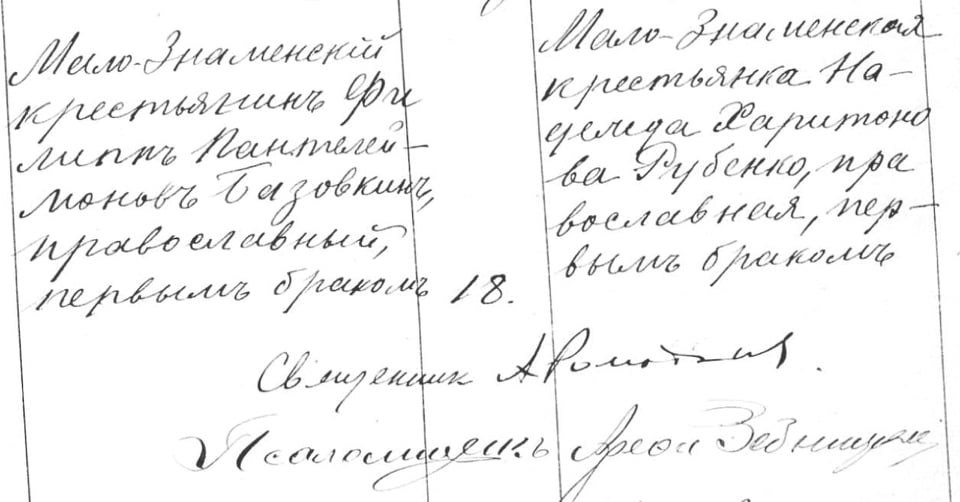 Мало-Знаменскій
крестьянинъ Фи
липпъ Пантелей-
моновъ Базовкинъ,
православный,
первымъ бракомъ
18.
Мало-Знаменская
крестьянка На-
дежда Харитоно
ва Рубенко, пра
вославная, пер-
вымъ бракомъ
Священник А
Псаломщикъ